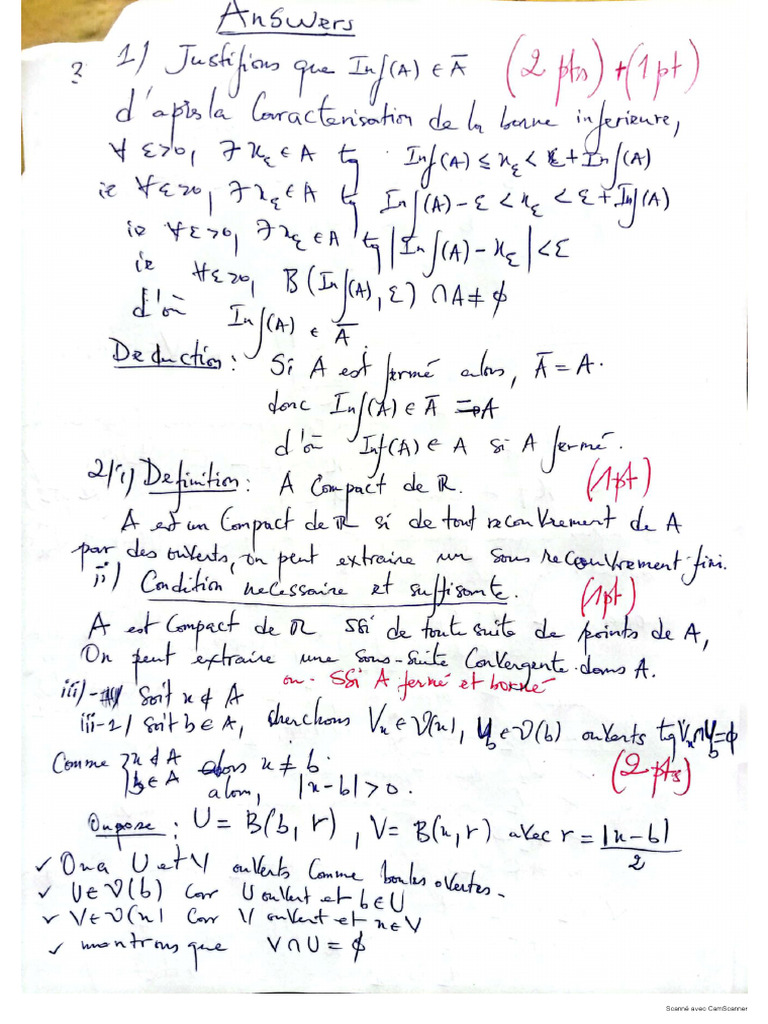 Answers
1) Justifions que Inf(A) ∈ Ā (2 pts) + (1 pt)
d'après la Caracterisation de la borne inferieure,
∀ ε>0, ∃ x_ε ∈ A tq Inf(A) ≤ x_ε < ε + Inf(A)
ie ∀ ε>0, ∃ x_ε ∈ A tq Inf(A) - ε < x_ε < ε + Inf(A)
ie ∀ ε>0, ∃ x_ε ∈ A tq |Inf(A) - x_ε| < ε
ie ∀ ε>0, B(Inf(A), ε) ∩ A ≠ ∅
d'où Inf(A) ∈ Ā.
Deduction: Si A est fermé alors, Ā = A.
donc Inf(A) ∈ Ā = A
d'où Inf(A) ∈ A si A fermé.
2/i) Definition: A Compact de ℝ. (1pt)
A est un Compact de ℝ si de tout recouvrement de A
par des ouverts, on peut extraire un sous recouvrement fini.
ii) Condition necessaire et suffisante. (1pt)
A est Compact de ℝ ssi de toute suite de points de A,
On peut extraire une sous-suite Convergente dans A.
ou - SSi A fermé et borné
iii)- Soit x ∉ A
iii-1) Soit b ∈ A, cherchons V_x ∈ 𝒱(x), U_b ∈ 𝒱(b) ouverts tq V_x ∩ U_b = ∅
Comme { x ∉ A alors x ≠ b. (2 pts)
b ∈ A alors, |x-b| > 0.
On pose: U = B(b, r), V = B(x, r) avec r = |x-b|/2
✓ On a U et V ouverts Comme boules ouvertes.
✓ U ∈ 𝒱(b) car U ouvert et b ∈ U
✓ V ∈ 𝒱(x) car V ouvert et x ∈ V
✓ montrons que V ∩ U = ∅
Scanné avec CamScanner